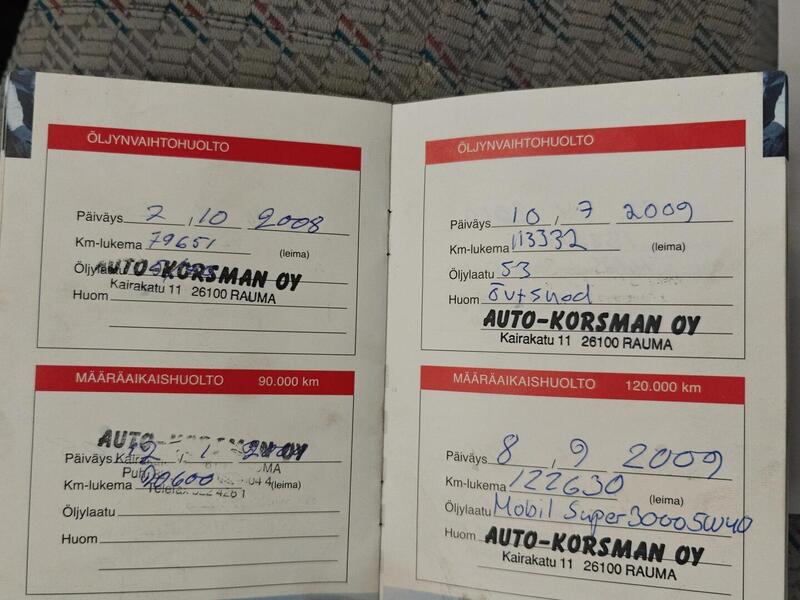 ÖLJYNVAIHTOHUOLTO
Päiväys 2 , 10 2008
Km-lukema 79651
(leima)
Öljylaatu
AUTO-KORSMAN OY
Kairakatu 11 26100 RAUMA
Huom
MÄÄRÄAIKAISHUOLTO 90.000 km
AUTO-KORSMAN OY
Päiväys 1
Km-lukema 90600 (leima)
Öljylaatu
Huom
ÖLJYNVAIHTOHUOLTO
Päiväys 10 , 7 2009
Km-lukema 113332 (leima)
Öljylaatu 53
Huom
AUTO-KORSMAN OY
Kairakatu 11 26100 RAUMA
MÄÄRÄAIKAISHUOLTO 120.000 km
Päiväys 8 , 9 2009
Km-lukema 122630
(leima)
Öljylaatu Mobil Super 3000 5W40
Huom
AUTO-KORSMAN OY
Kairakatu 11 26100 RAUMA